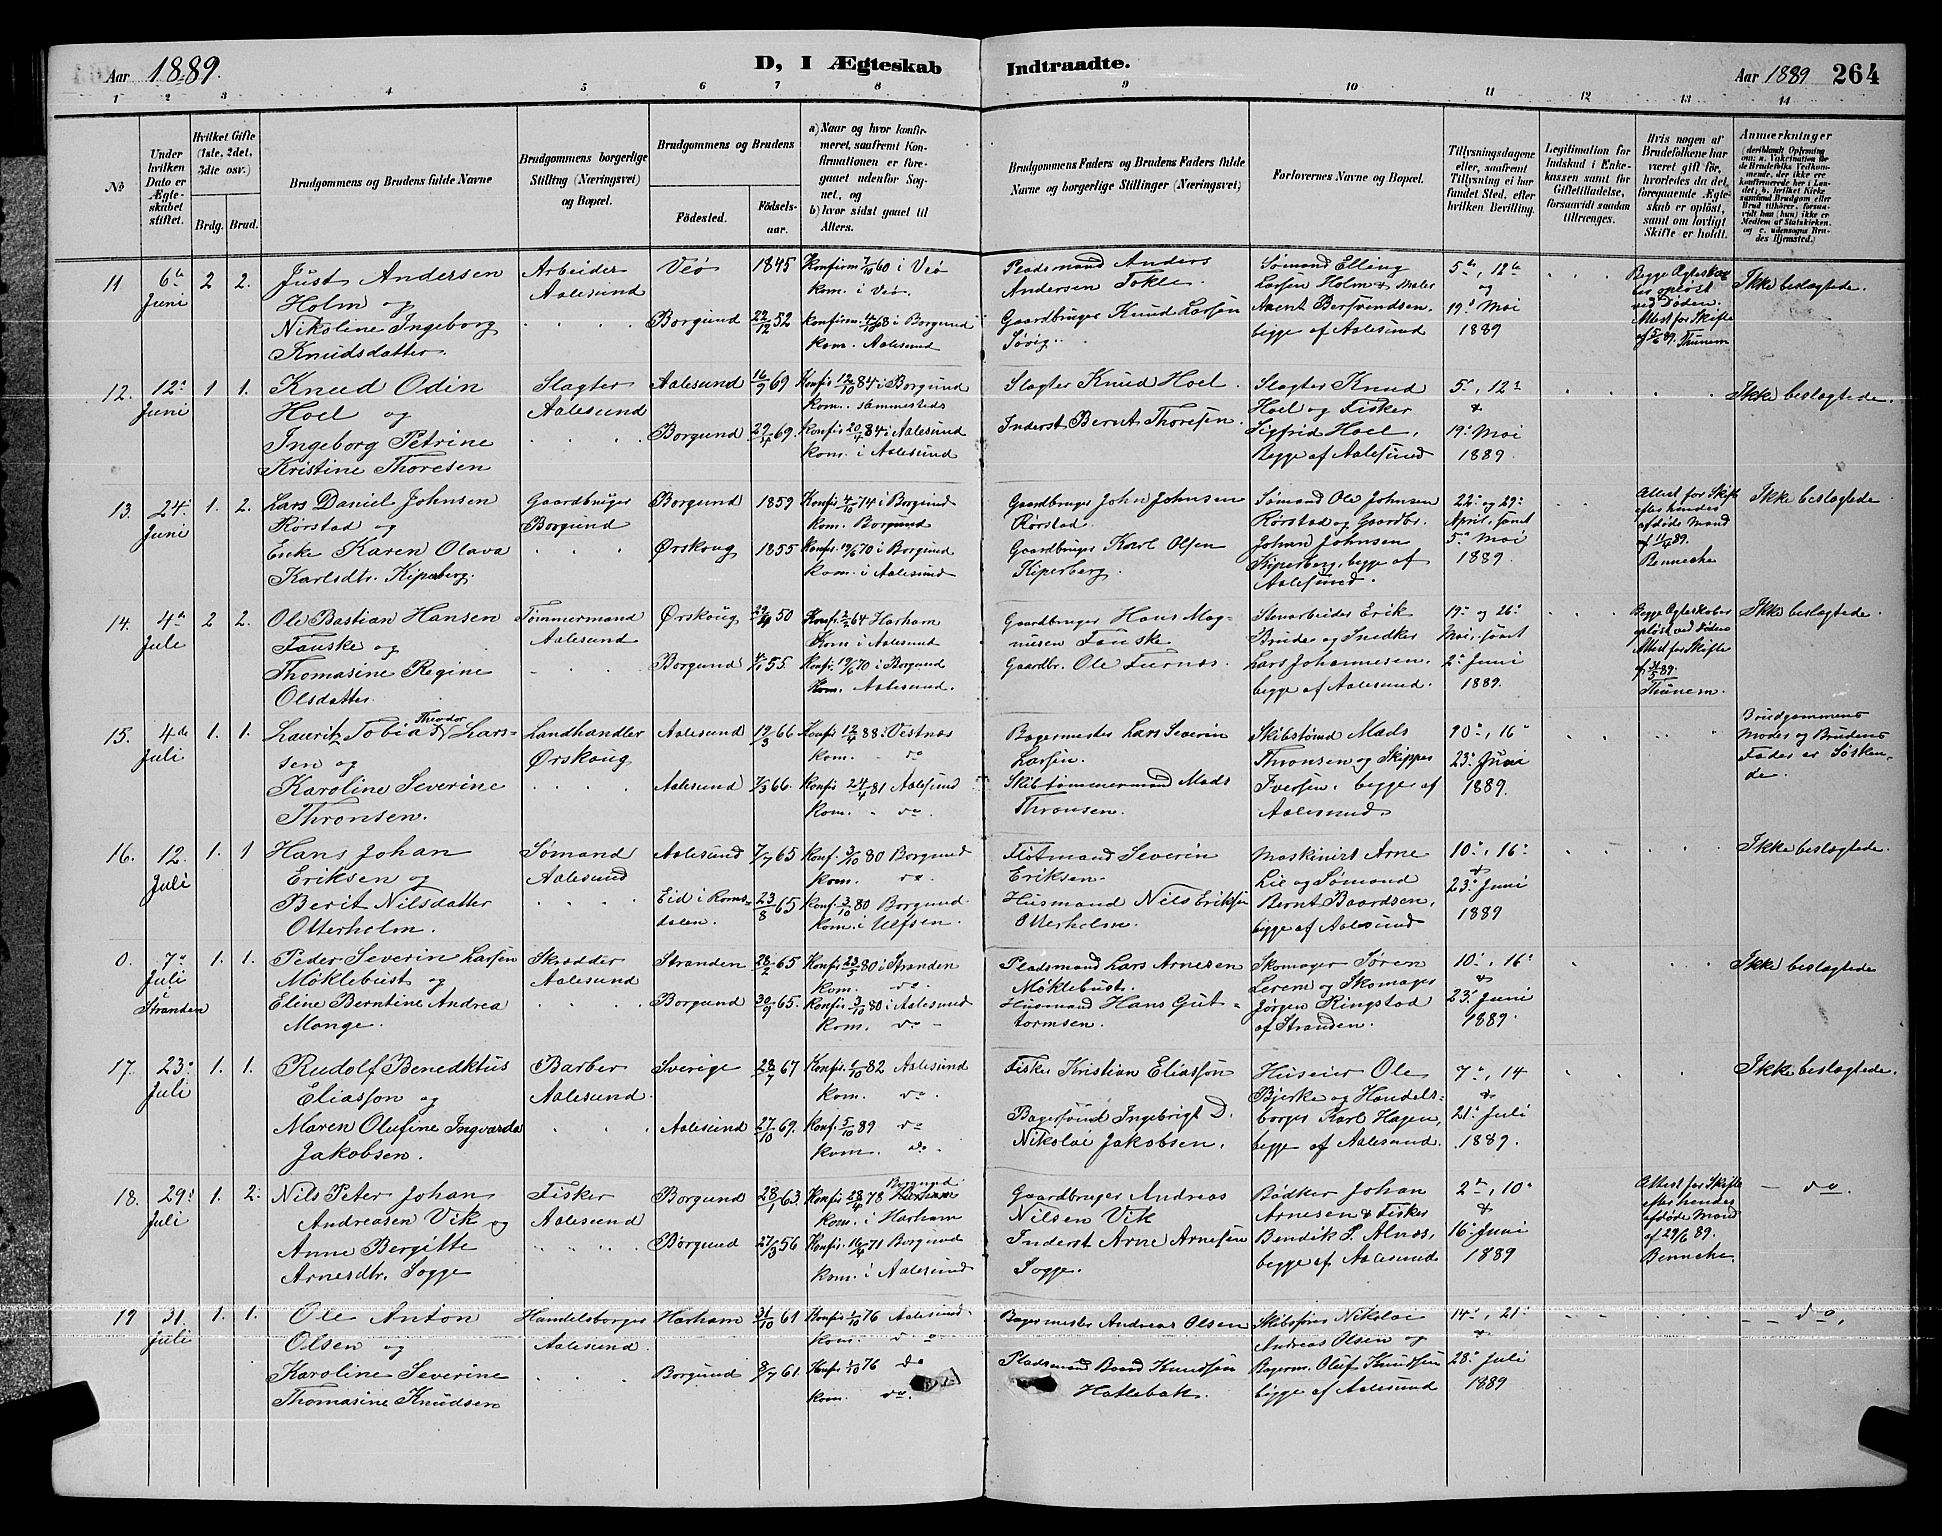 Aar 1889.
D, I Ægteskab Indtraadte.
Aar 1889 264
1 2 3 4 5 6 7 8 9 10 11 12 13 14
No
Under hvilken Dato er Ægteskabet stiftet.
Hvilket Gifte (1ste, 2det, 3die osv.)
Brdg. Brud.
Brudgommens og Brudens fulde Navne
Brudgommens borgerlige Stilling (Næringsvei) og Bopæl.
Brudgommens og Brudens
Fødested. Fødselsaar.
a) Naar og hvor konfirmeret, saafremt Konfirmationen er foregaaet udenfor Sognet, og
b) hvor sidst gaaet til Alters.
Brudgommens Faders og Brudens Faders fulde Navne og borgerlige Stillinger (Næringsvei)
Forlovernes Navne og Bopæl.
Tillysningsdagene eller, saafremt Tillysning ei har fundet Sted, efter hvilken Bevilling.
Legitimation for Indskud i Enkekassen samt for Giftetilladelse, forsaavidt saadan tiltrænges.
Hvis nogen af Brudefolkene har været gift før, hvorledes da det foregaaende Ægteskab er opløst, samt om lovligt Skifte er holdt.
Anmærkninger
11 6te Juni 2 2. Just Andersen Holm og Arbeider Aalesund Veø 1845 Konfirm 7/10 60 i Veø kom. i Veø. Pladsmand Anders Andersen Tokle. Sømand Elling Larsen Holm & Maler 5te, 12te og 19de Mai 1889 Begge Ægteskaber opløst ved Døden. Attest for Skifte af 5/6 89. Thunem Ikke beslægtede.
Nikoline Ingeborg Knudsdatter. Borgund 22/12 52 Konfirm. 4/10 68 i Borgund kom. Aalesund Gaardbruger Knud Larsen Søvig. begge af Aalesund
12. 12te Juni 1 1. Knud Odin Hoel og Slagter Aalesund Aalesund 16/9 69 Konfir 12/10 84 i Borgund kom. sammesteds Slagter Knud Hoel. Slagter Knud Hoel og Fisker Sigfrid Hoel, Begge af Aalesund 5te, 12te & 19de Mai 1889. Ikke beslægtede.
Ingeborg Petrine Kristine Thoresen Borgund 29/4 69. Konfir 20/4 84 i Aalesund kom. i Aalesund Inderst Bernt Thoresen.
13. 24de Juni 1. 2. Lars Daniel Johnsen Rørstad og Gaardbruger Borgund Borgund 1859 Konfir 4/10 74 i Borgund kom. Borgund Gaardbruger John Johnsen Rørstad. Sømand Ole Johnsen Rørstad og Gaardbr. Johan Johnsen Kiperberg, begge af Aalesund. 22de og 29de April, samt 5te Mai 1889. Attest for Skifte efter hendes afdøde Mand af 11/4 89. Bennecke Ikke beslægtede
Enke Karen Olava Karlsdtr. Kiperberg. Ørskoug 1855 Konfir 19/6 70 i Borgund kom. i Aalesund Gaardbruger Karl Olsen Kiperberg.
14. 4de Juli 2 2. Ole Bastian Hansen Fauske og Tømmermand Aalesund Ørskoug 29/4 50 Konfir 64 Harham Kom i Aalesund Gaardbruger Hans Magnusen Fauske Stenarbeider Erik Brude og Snedker Lars Johannesen, begge af Aalesund. 19de og 26de Mai, samt 2den Juni 1889. Begge Ægteskaber opløst ved Døden Attest for Skifte af 31/5 89. Thunem. Ikke beslægtede.
Thomasine Regine Olsdatter. Borgund 55. Konfir 19/6 70 i Borgund Kom. Aalesund. Gaardbr. Ole Furnæs.
15. 4de Juli 1. 1. Lauritz Tobias Theodor Larsen og Landhandler Ørskoug Aalesund 19/3 66 Konfir 12/4 88 i Vestnæs kom. do Bagermester Lars Severin Larsen. Skibstømd Mads Thronsen og Skipper Iversen, begge af Aalesund. 16de 23de Juni 1889. Brudgommens Moder og Brudens Fader er Søskende.
Karoline Severine Thronsen. Aalesund 7/3 66. Konfir 24/4 81 Aalesund kom. do. Skibstømmermand Mads Thronsen.
16. 12. Juli 1. 1 Hans Johan Eriksen og Sømand Aalesund Aalesund 7/7 65 Konf. 3/10 80 Borgund kom. do. Flotmand Severin Eriksen. Maskinist Arne Lie og Sømand Bernt Baardsen, begge af Aalesund 10de, 16de & 23de Juni 1889 Ikke beslægtede.
Berit Nilsdatter Otterholm. Eid i Romsdalen. 23/8 65 Konf. 3/10 80 Borgund kom. i Ulfsen. Husmand Nils Eriksen Otterholm.
0. 7de Juli Stranden 1. 1. Peder Severin Larsen Møklebust og Skrædder Aalesund Stranden 28/2 65 Konfir 23/5 80 i Stranden kom. do. Pladsmand Lars Arnesen Møklebust. Skomager Søren Lerene og Skomager Jørgen Ringstad af Stranden. 10de, 16de & 23de Juni 1889. Ikke beslægtede
Eline Berntine Andrea Monge. Borgund 30/9 65. Konfir 3/10 80 i Aalesund kom. do Husmand Hans Guttormsen.
17. 23de Juli 1. 1. Rudolf Benediktus Eliasson og Barber Aalesund. Sverige 28/7 67 Konfir. 1/10 82 Aalesund kom. do. Fisker Kristian Eliasson Huseier Ole Bjerke og Handelsborger Karl Hagen, begge af Aalesund. 7de, 14 & 21de Juli 1889. Ikke beslægtede.
Maren Olufine Ingvarda Jakobsen. Aalesund 27/10 69. Konf. 5/10 89 do kom. do. Bagersvend Ingebrigt D. Nikolai Jakobsen.
18. 29de Juli 1. 2. Nils Peter Johan Andreasen Vik og Fisker Aalesund Borgund 28/1 63. Konfir 28/4 78 Borgund Harham kom. i Harham Gaardbruger Andreas Nilsen Vik Bødker Johan Arnesen & Fisker Bendik P. Alnæs, begge af Aalesund 2den, 10de & 16de Juni 1889 Attest for Skifte efter hendes afdøde Mand af 29/6 89. Bennecke. do.
Anne Bergitte Arnesdtr. Sogge Borgund 27/3 56 Konfir. 16/4 71 Borgund kom. i Aalesund Inderst Arne Arnesen Sogge.
19 31. Juli 1. 1. Ole Anton Olsen og Handelsborger Aalesund. Harham 31/10 61 Konfir 1/10 76 Aalesund kom. do Bagermester Andreas Olsen Skibsfører Nikolai Andreas Olsen og Bagerm. Oluf Knudsen begge af Aalesund 14de, 21de & 28de Juli 1889 do.
Karoline Severine Thomasine Knudsen Borgund 8/7 61. Konfir 1/10 76 do kom. do. Pladsmand Baard Knudsen Hatlebak.